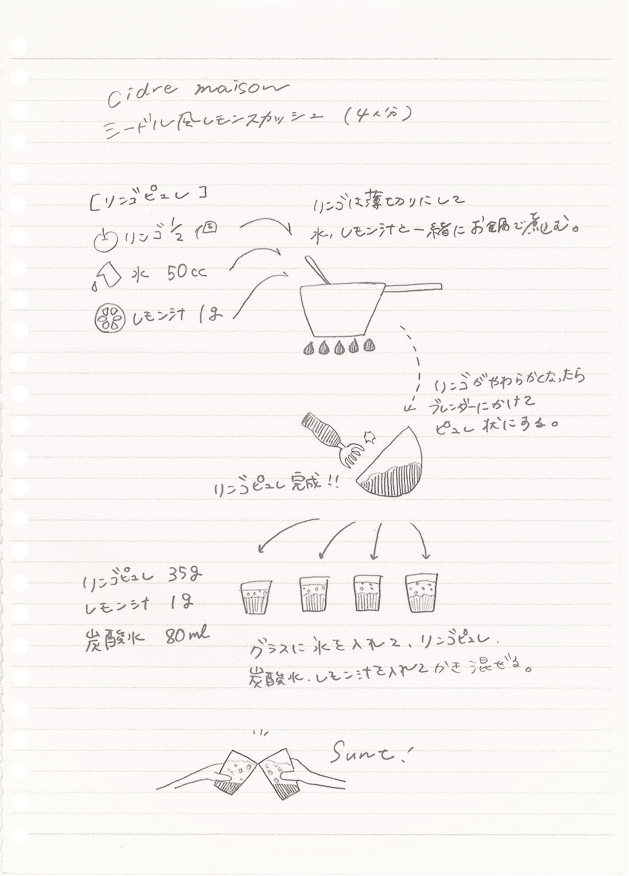 Cidre maison
シードル風レモンスカッシュ (4人分)
[リンゴピュレ]
リンゴ 1/2 個
水 50cc
レモン汁 1g
リンゴは薄切りにして
水,レモン汁と一緒にお鍋で煮込む。
リンゴがやわらかくなったら
ブレンダーにかけて
ピュレ状にする。
リンゴピュレ完成!!
リンゴピュレ 35g
レモン汁 1g
炭酸水 80ml
グラスに氷を入れて、リンゴピュレ.
炭酸水.レモン汁を入れてかき混ぜる。